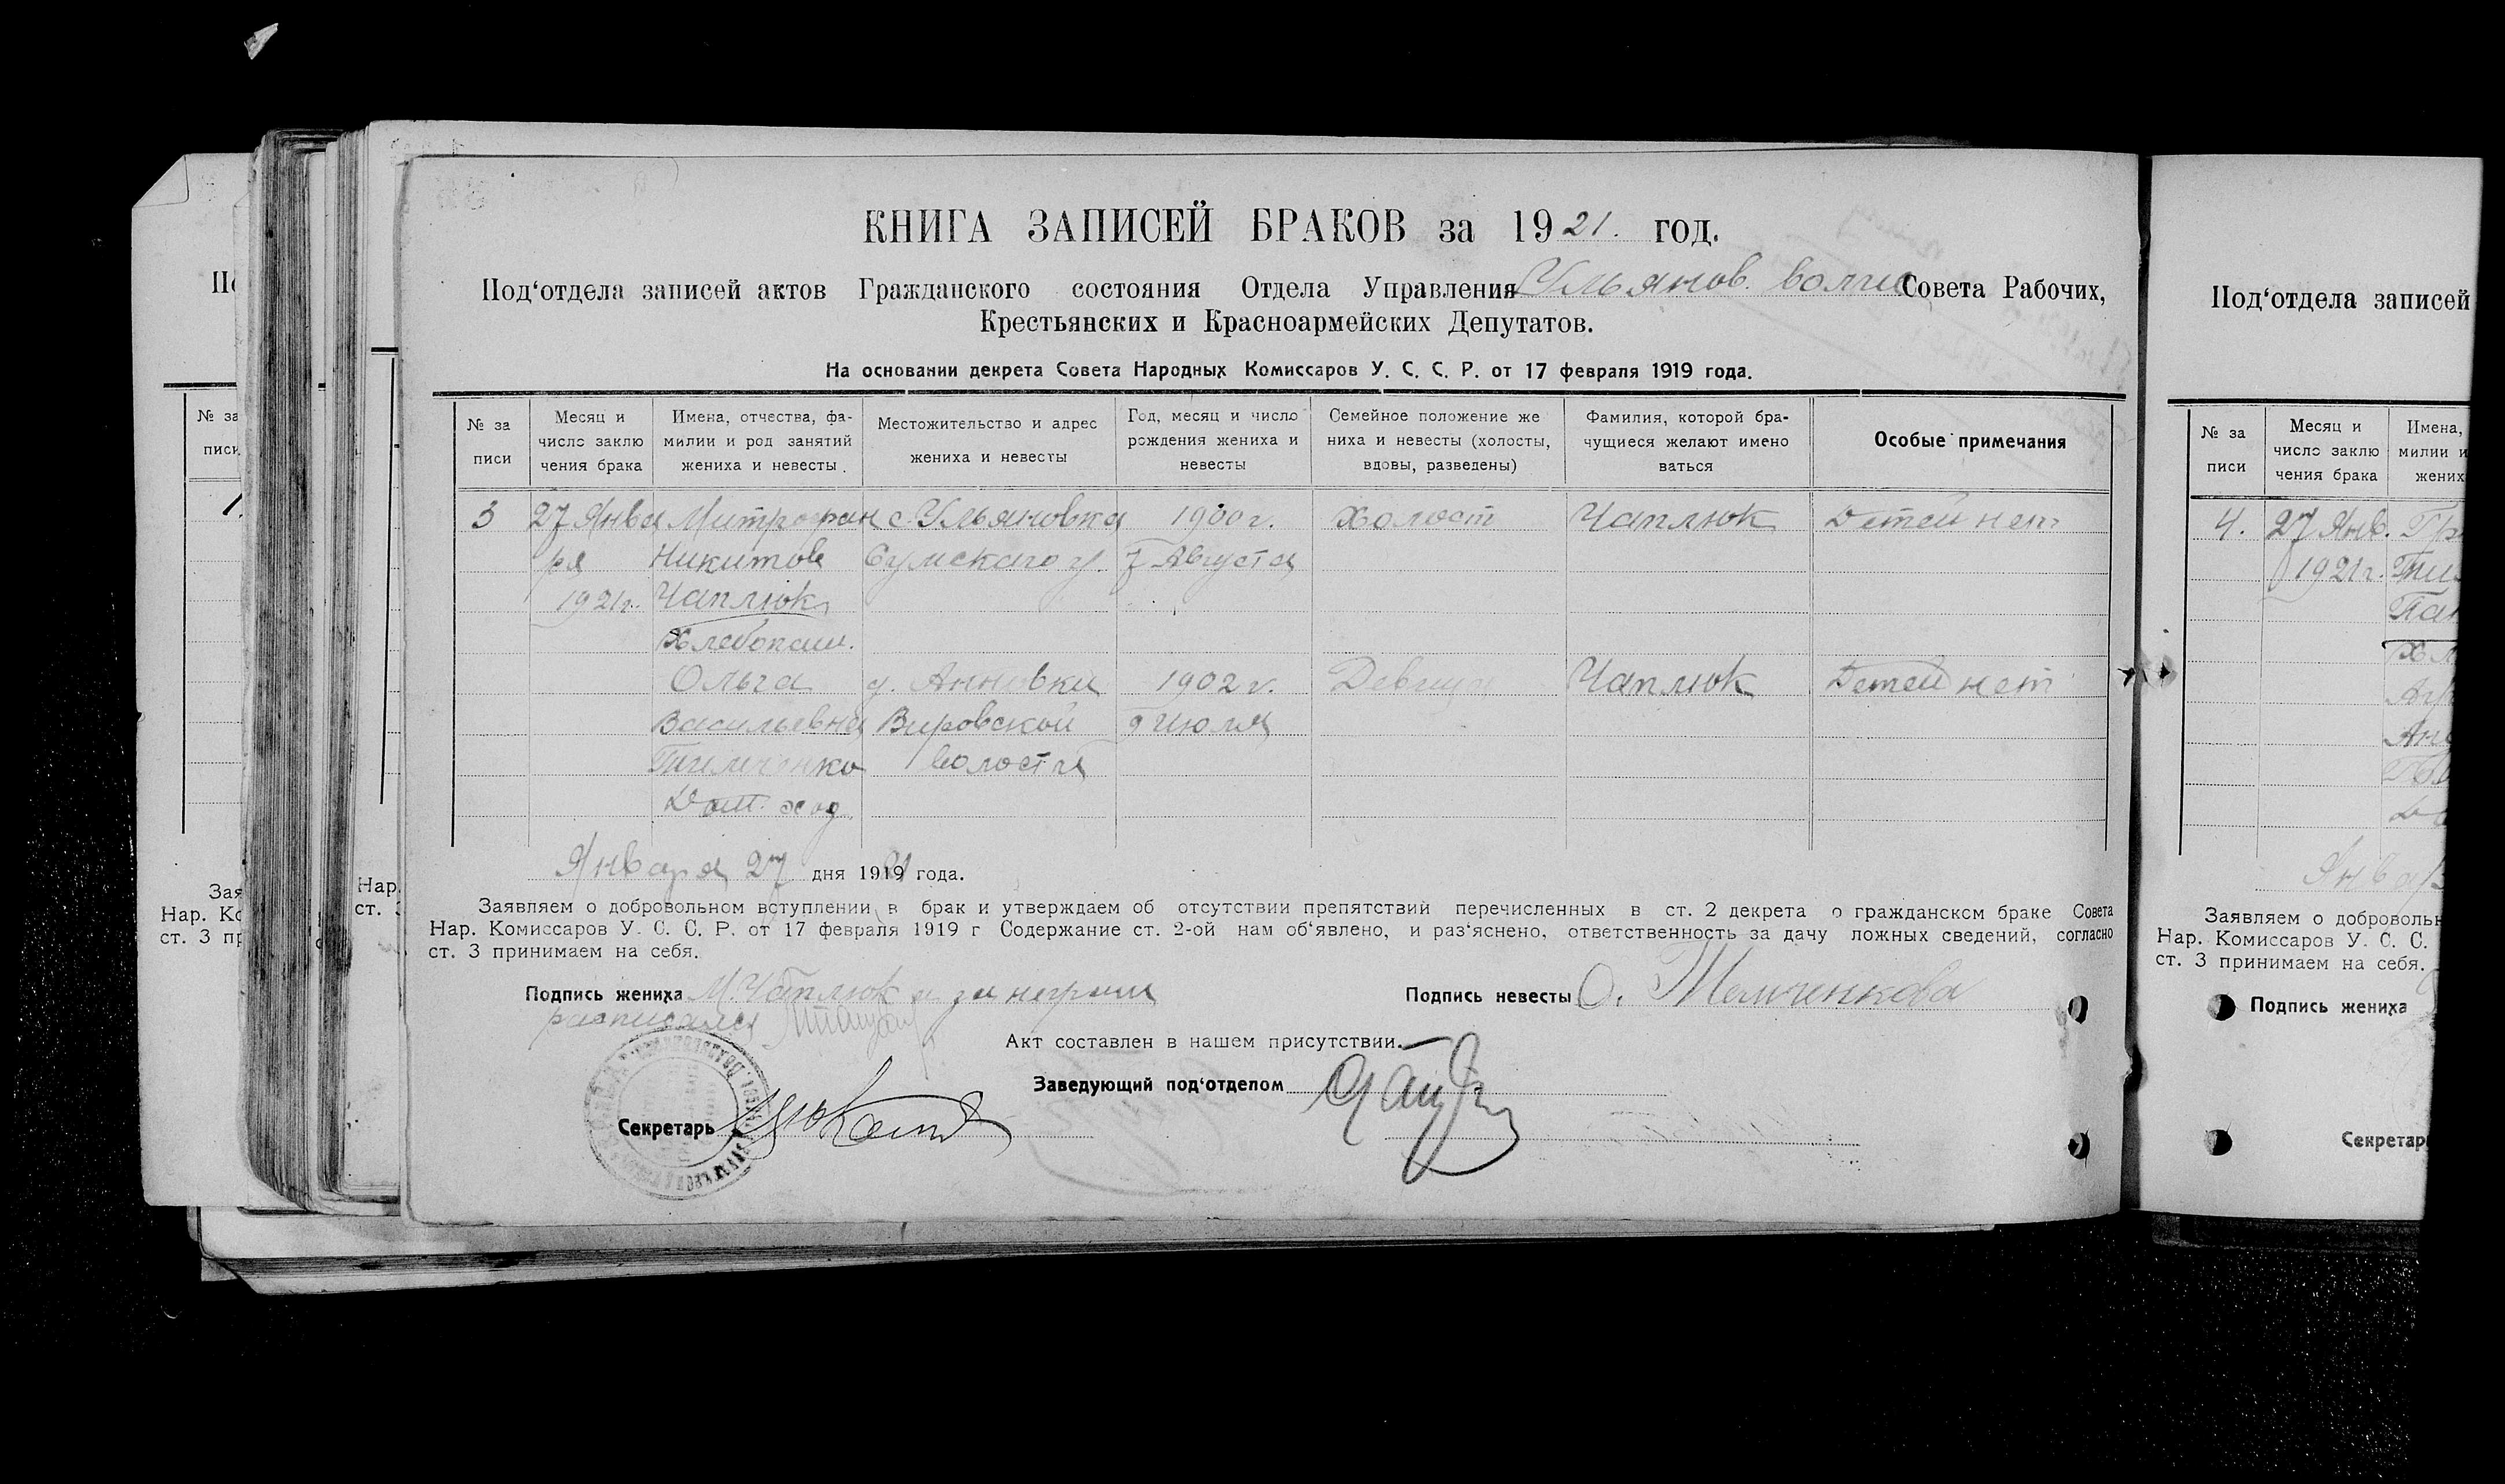 КНИГА ЗАПИСЕЙ БРАКОВ за 1921. год.
Под‘отдела записей актов Гражданского состояния Отдела Управления Ульянов. Совета Рабочих,
Крестьянских и Красноармейских Депутатов.
На основании декрета Совета Народных Комиссаров У. С. С. Р. от 17 февраля 1919 года.
№ за писи
Месяц и число заклю чения брака
Имена, отчества, фа- милии и род занятий жениха и невесты.
Местожительство и адрес жениха и невесты
Год, месяц и число рождения жениха и невесты
Семейное положение же ниха и невесты (холосты, вдовы, разведены)
Фамилия, которой бра- чущиеся желают имено ваться
Особые примечания
3 27 Янва Митрофан с. Ульяновка 1900 г. Холост Чаплюк Детей нет
ря Никитов Сумского у. 7 Августа
1921 г. Чаплюк
Хлебопаш.
Ольга д. Анновки 1902 г. Девица Чаплюк Детей нет
Васильевна Вировской 9 Июля
волости
Дом. хоз.
Января 27 дня 1921 года.
Заявляем о добровольном вступлении в брак и утверждаем об отсутствии препятствий перечисленных в ст. 2 декрета о гражданском браке Совета
Нар. Комиссаров У. С. С. Р. от 17 февраля 1919 г Содержание ст. 2-ой нам об‘явлено, и раз‘яснено, ответственность за дачу ложных сведений, согласно
ст. 3 принимаем на себя.
Подпись жениха М. Чаплюк а за неграм
расписался
Подпись невесты О.
Акт составлен в нашем присутствии.
Заведующий под‘отделом
Секретарь
Под‘отдела записей
№ за писи
Месяц и число заклю чения брака
Имена,
милии и
жених
4. 27 Янв.
1921 г.
Заявляем о доброволь
Нар. Комиссаров У. С. С.
ст. 3 принимаем на себя.
Подпись жениха
Секретар